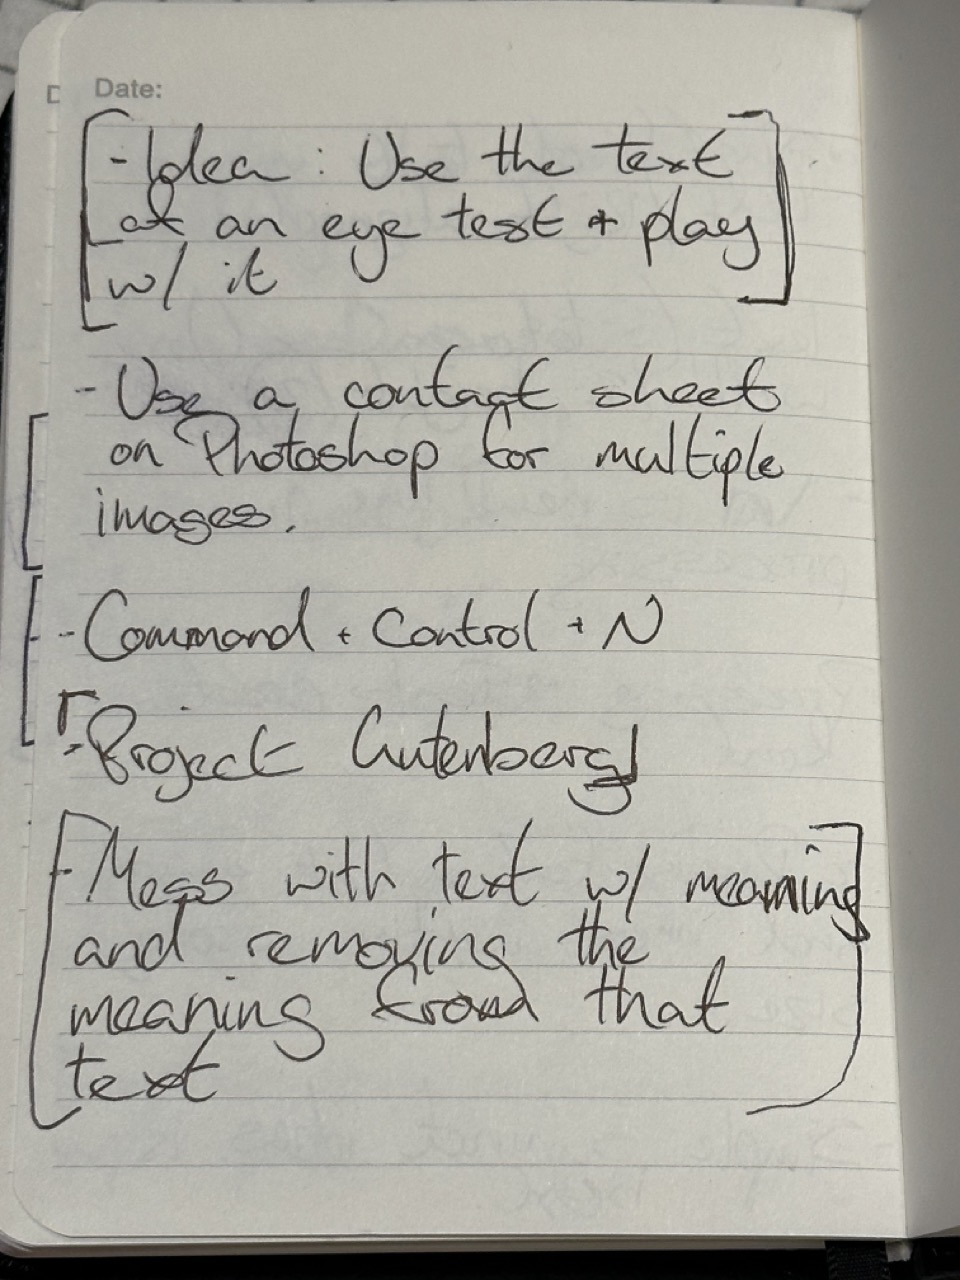 Date:
- Idea : Use the text
of an eye test + play
w/ it
- Use a contact sheet
on Photoshop for multiple
images.
- Command + Control + N
- Project Gutenberg
- Mess with text w/ meaning
and removing the
meaning from that
text